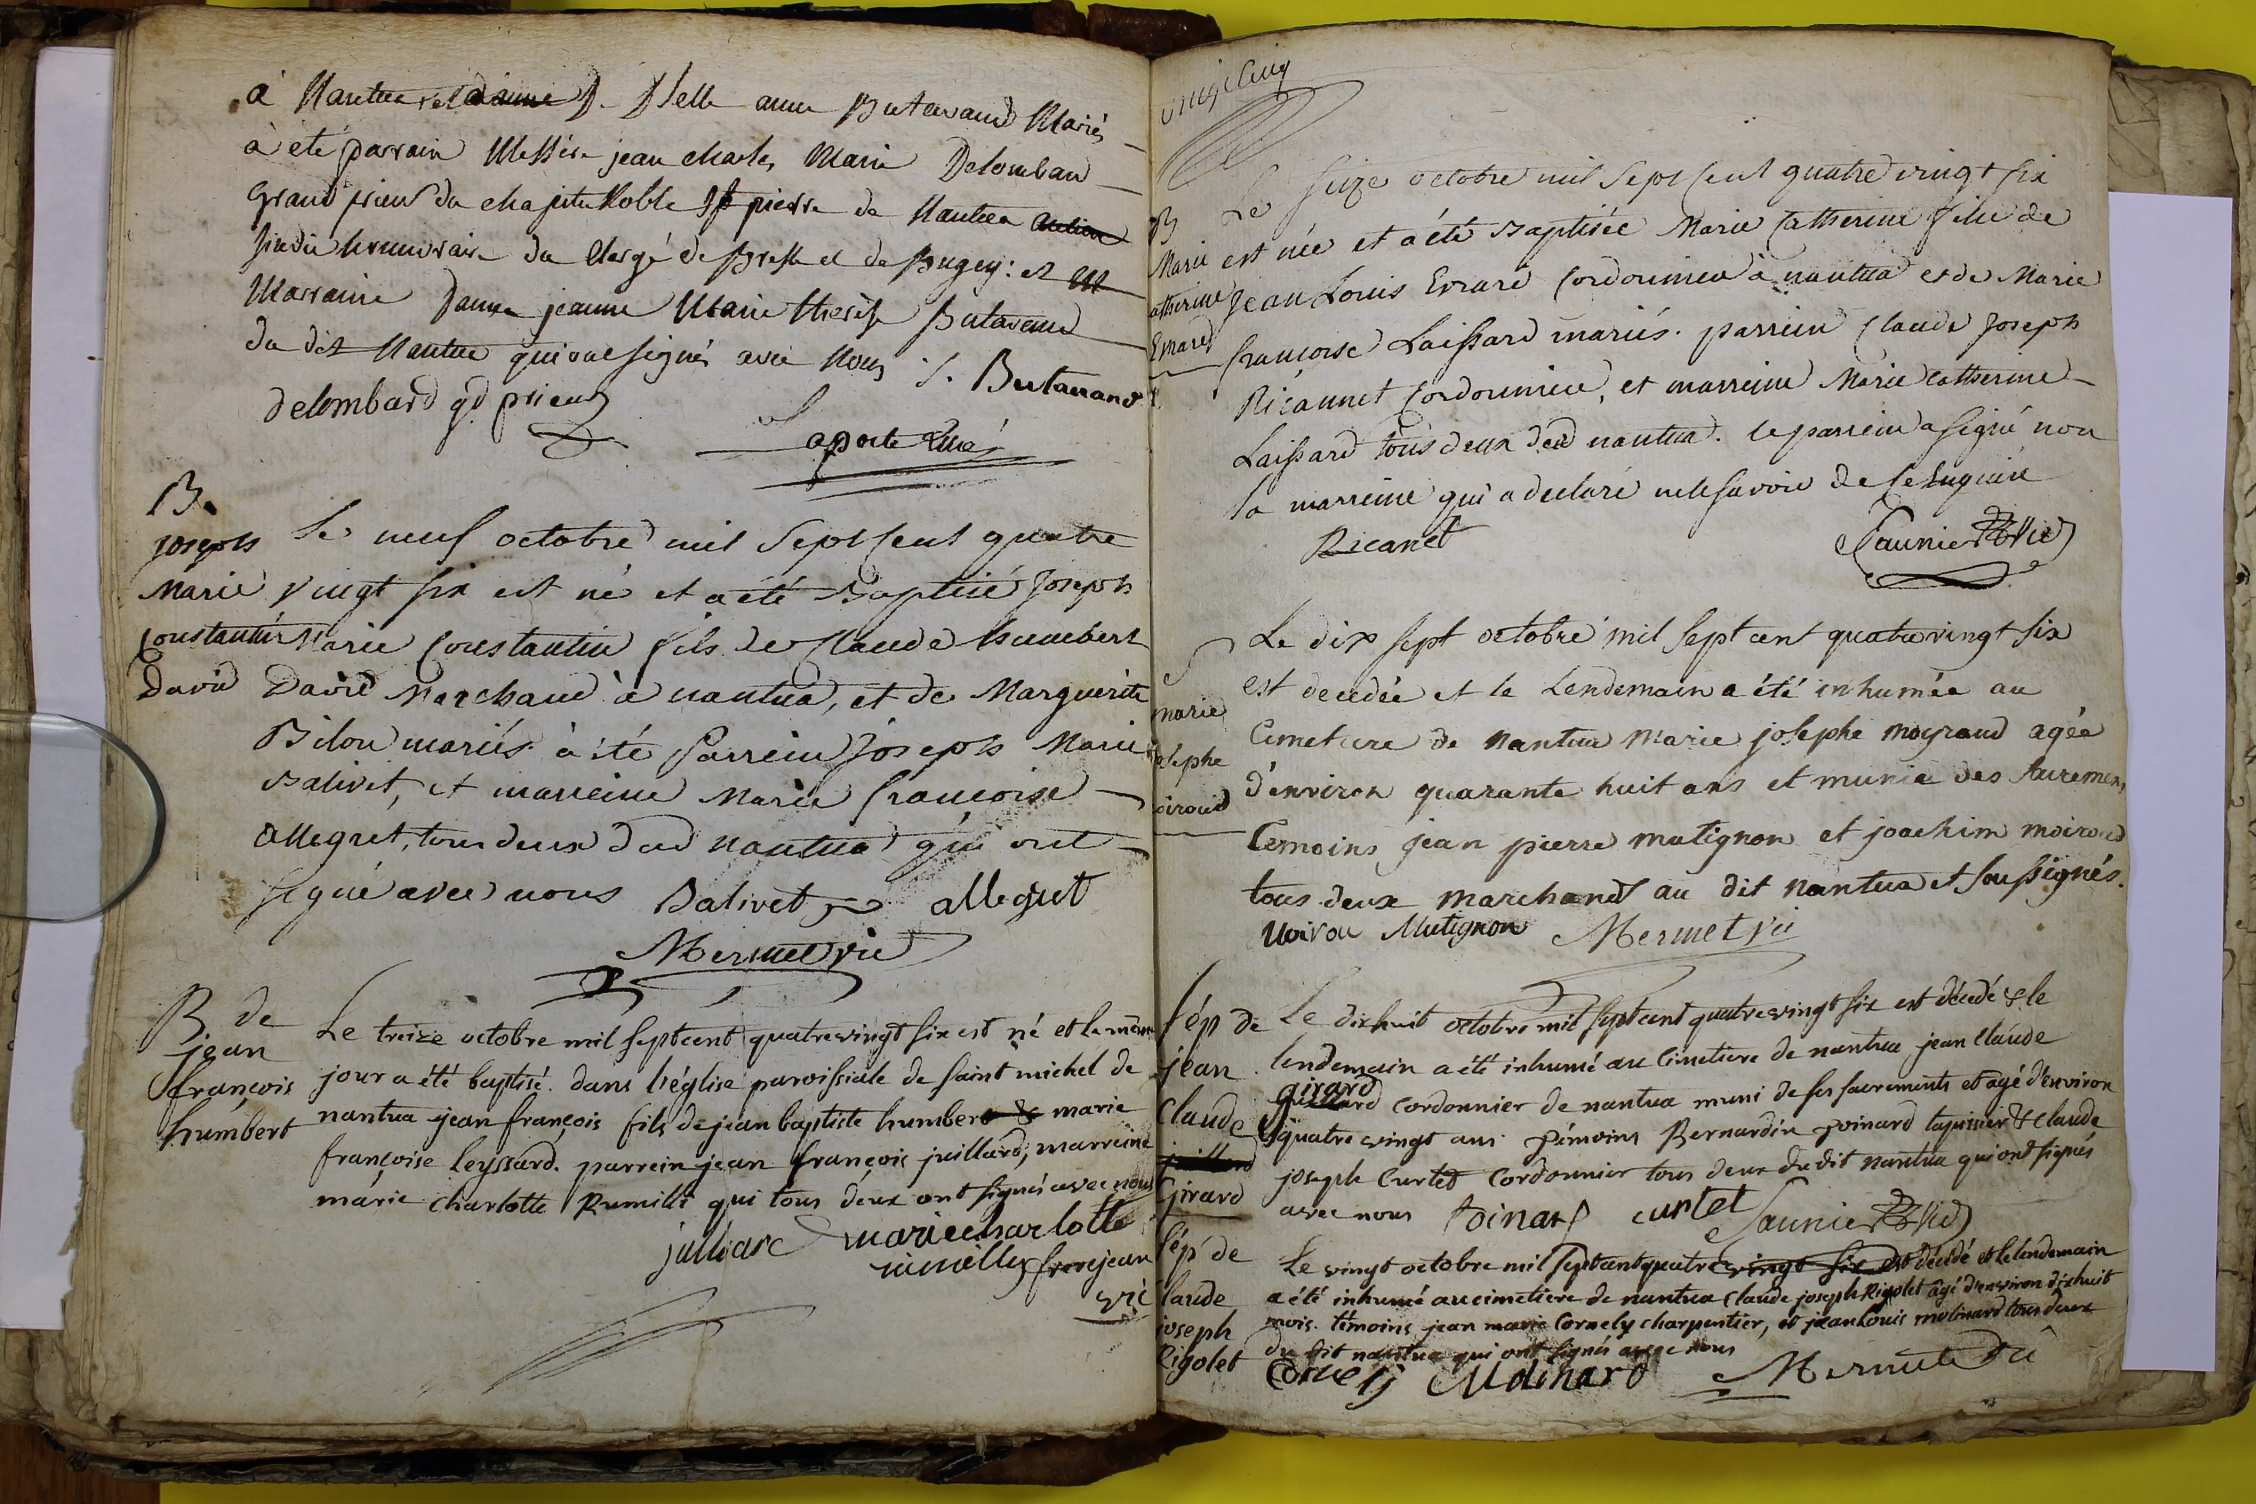 à Nantua et D. Dlle anne Butavand Mariés
à eté parrain Messire jean charles Marie Delombard
Grand prieur du chapitre Noble St pierre de Nantua
sindic honoraire du Clergé de Bresse et du Bugey: et
Marraine Dame jeanne Marie therèse Butavand
du dit Nantua qui ont signés avec Nous J. Butavand
delombard gd prieur
Laporte Curé
B.
joseph
Marie
Constantin
David
Le neuf octobre mil sept cent quatre
vingt six est né et a été Baptisé Joseph
Marie Constantin fils de Claude humbert
David Marchand à nantua, et de Marguerite
Bilon mariés. à été Parrein Joseph Marie
Balivet, et marreine Marie françoise
allegret, tous deux dud nantua qui ont
signé avec nous Balivet allegret
Mermet vic
B. de
jean
françois
humbert
Le treize octobre mil sept cent quatrevingt six est né et le même
jour a été baptisé dans l'église paroissiale de saint michel de
nantua jean françois fils de jean baptiste humbert & marie
françoise leyssard. parrein jean françois juillard; marreine
marie charlotte Rumilli qui tous deux ont signés avec nous
julliard marie charlotte
rumilly frerejean
vic
vingt cinq
B
Marie
Catherine
Evrard
Le seize octobre mil sept cent quatre vingt six
est née et a été Baptisée Marie Catherine fille de
Jean Louis Evrard Cordonnier à nantua et de Marie
françoise Laissard mariés. parrein Claude Joseph
Ricannet Cordonnier, et marreine Marie Catherine
Laissard tous deux dud nantua. le parrein a signé non
la marreine qui a declaré ne le savoir de ce enquise
Ricanet
Saunier Vic
S
marie
josephe
moiroud
Le dix sept octobre mil sept cent quatre vingt six
est decedée et le Lendemain a été inhumée au
Cimetiere de nantua Marie josephe moyraud agée
d'environ quarante huit ans et munie des sacremens
temoins jean pierre mutignon et joachim moiroud
tous deux marchands au dit nantua et soussignés.
Moirou Mutignon Mermet vic
Sép de
jean
Claude
juillard
Girard
Le dixhuit octobre mil sept cent quatrevingt six est décédé & le
lendemain a été inhumé au Cimetiere de nantua jean Claude
girard
cordonnier de nantua muni de ses sacrements et agé d'environ
quatre vingt ans témoins Bernardin poinard tapissier & Claude
joseph Curtet Cordonnier tous deux du dit Nantua qui ont signés
avec nous Poinard curtet Saunier Vic
Sép de
claude
joseph
Rigolet
Le vingt octobre mil sept cent quatre vingt six est décédé et le lendemain
a été inhumé au cimetiere de nantua Claude joseph Rigolet agé d'environ dixhuit
mois. témoins jean marie Cornely charpentier, et jean Louis molinard tous deux
du dit nantua qui ont signés avec nous
Cornely Molinard Mermet Vic